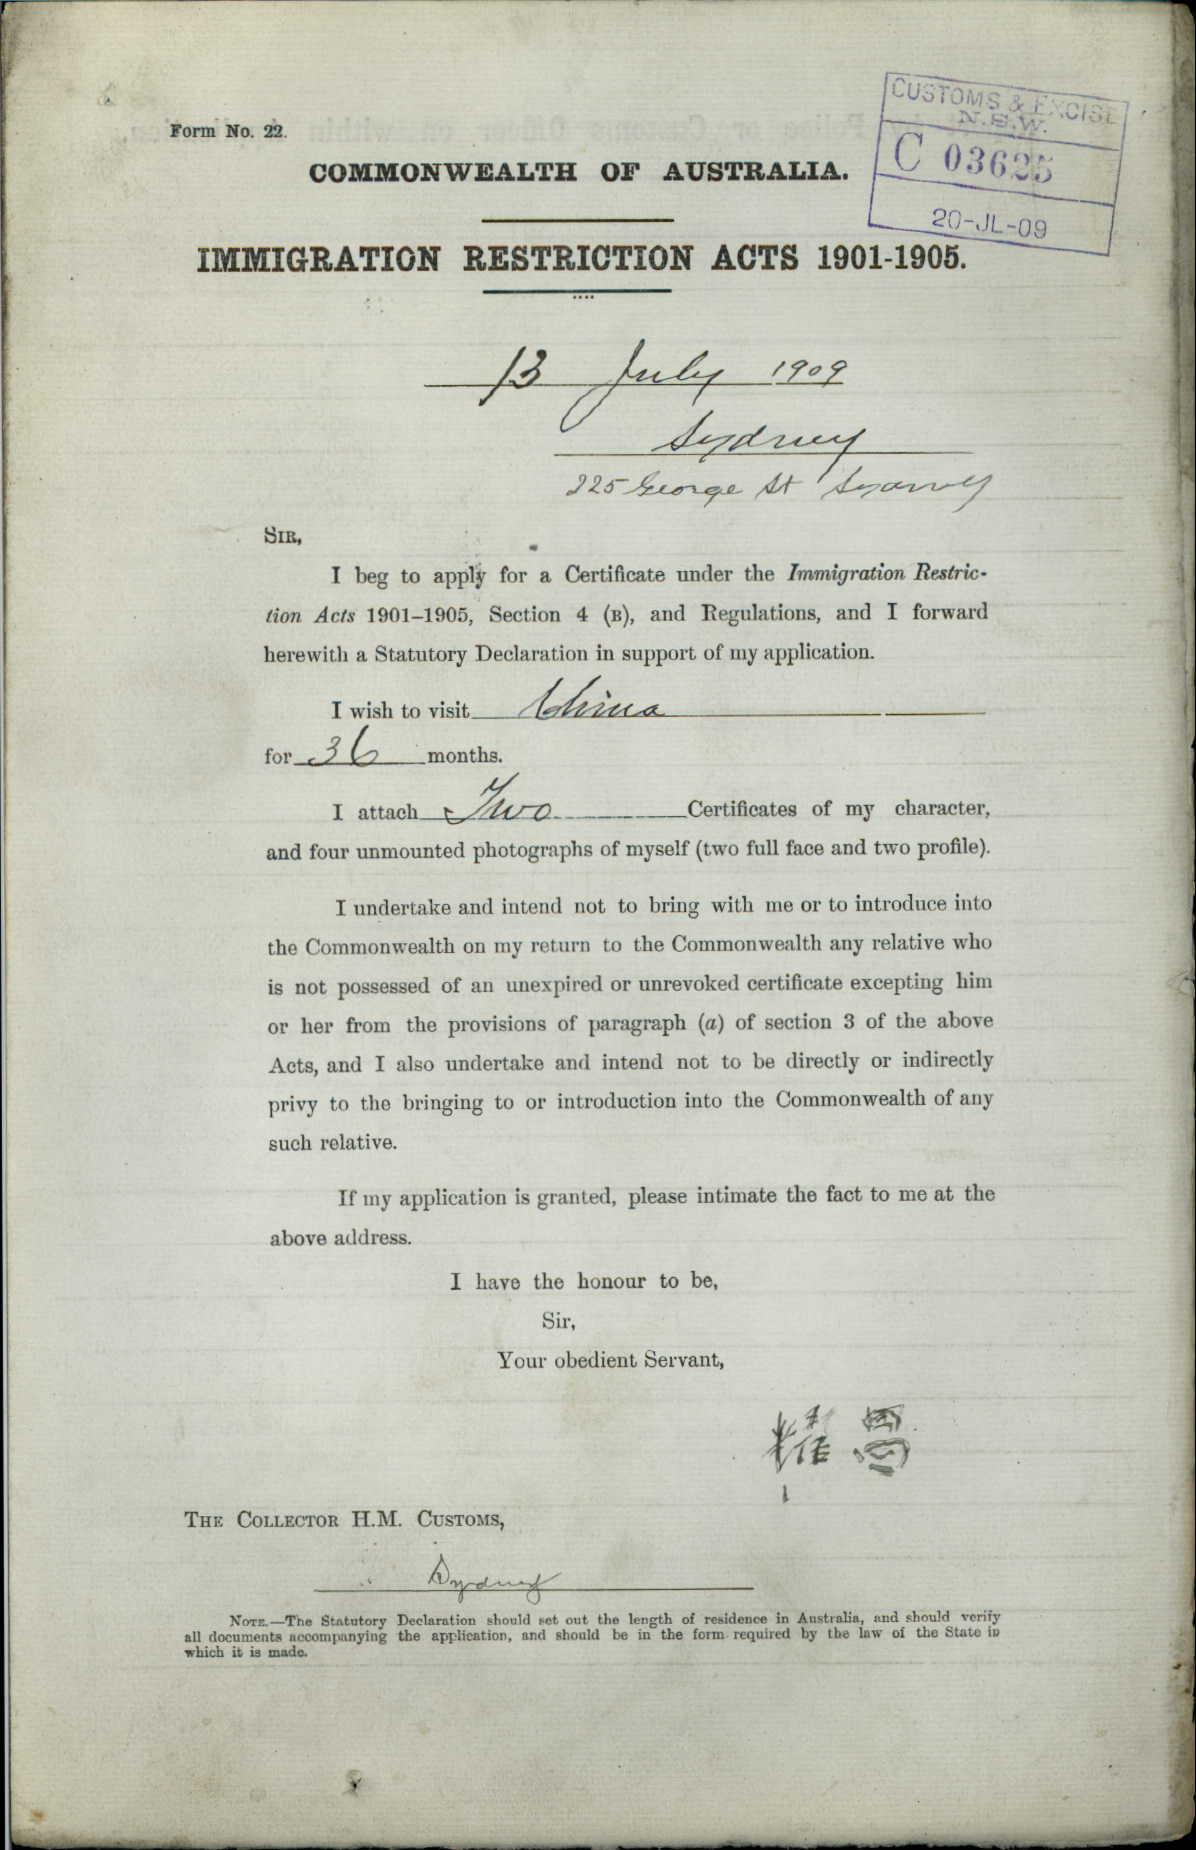 CUSTOMS & EXCISE
N.S.W.
C 03625
20-JL-09
Form No. 22.
COMMONWEALTH OF AUSTRALIA.
IMMIGRATION RESTRICTION ACTS 1901-1905.
13 July 1909
Sydney
225 George St Sydney
SIR,
I beg to apply for a Certificate under the Immigration Restric-
tion Acts 1901–1905, Section 4 (B), and Regulations, and I forward
herewith a Statutory Declaration in support of my application.
I wish to visit China
for 36 months.
I attach Two Certificates of my character,
and four unmounted photographs of myself (two full face and two profile).
I undertake and intend not to bring with me or to introduce into
the Commonwealth on my return to the Commonwealth any relative who
is not possessed of an unexpired or unrevoked certificate excepting him
or her from the provisions of paragraph (a) of section 3 of the above
Acts, and I also undertake and intend not to be directly or indirectly
privy to the bringing to or introduction into the Commonwealth of any
such relative.
If my application is granted, please intimate the fact to me at the
above address.
I have the honour to be,
Sir,
Your obedient Servant,
THE COLLECTOR H.M. CUSTOMS,
Sydney
NOTE.—The Statutory Declaration should set out the length of residence in Australia, and should verify
all documents accompanying the application, and should be in the form required by the law of the State in
which it is made.